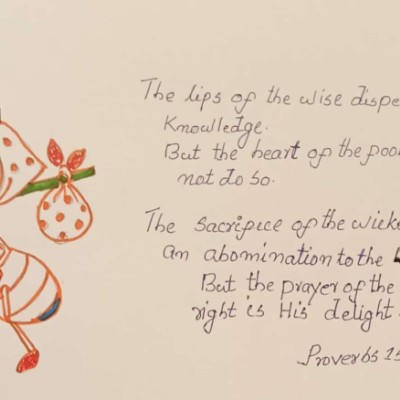 The lips of the wise dispe
Knowledge.
But the heart of the foo
not do so.
The sacrifice of the wicke
an abomination to the
But the prayer of the
right is His delight.
Proverbs 15